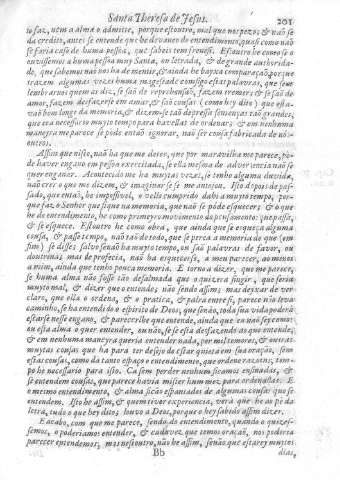 Santa Theresa de Jesus. 201
to faz, nem a alma o admitte, porque estoutro, mal que nos pez, & naõ se
da credito, antes se entende que he devaneo do entendimento, quasi como naõ
se faria caso de huma pessoa, que sabeis tem frenesi. Estoutro he como se o
ouvissemos a huma pessoa muy Santa, ou letrada, & de grande authorida-
de, que sabemos naõ nos ha de mentir, & ainda he bayxa comparaçaõ, porque
trazem algumas vezes huma magestade comsigo estas palavras, que sem
lembrarnos quem as diz, se saõ de reprehensaõ, fazem tremer; & se saõ de
amor, fazem desfazerse em amar, & saõ cousas (como hey dito) que esta-
vaõ bem longe da memoria, & dizem-se taõ depressa sentenças taõ grandes,
que era necessario muyto tempo para havellas de ordenar, & em nenhuma
maneyra me parece se póde entaõ ignorar, naõ ser cousa fabricada de nós
outros.
Assim que nisto, naõ ha que me deter, que por maravilha me parece, pò-
de haver engano em pessoa exercitada, se ella mesma de advertencia naõ se
quer enganar. Acontecido me ha muytas vezes, se tenho alguma duvida,
naõ crer o que me dizem, & imaginar se se me antojou. Isto depois de pas-
sado, que entaõ, he impossivel, & vello cumprido dahi a muyto tempo, por-
que faz o Senhor que fique na memoria, que naõ se póde esquecer: & o que
he de entendimento, he como primeyro movimento do pensamento: que passa,
& se esquece. Estoutro he como obra, que ainda que se esqueça alguma
cousa, & passe tempo, naõ taõ de todo, que se perca a memoria de que (em
fim) se disse, salvo senaõ ha muyto tempo, ou saõ palavras de favor, ou
doutrina; mas de profecia, naõ ha esquecerse, a meu parecer, ao menos
a mim, ainda que tenho pouca memoria. E torno a dizer, que me parece,
se huma alma não fosse taõ desalmada que o quizera fingir, que seria
muyto mal, & dizer que o entende, naõ sendo assim; mas deyxar de ver
claro, que ella o ordena, & o pratica, & palra entre si, parece não leva
caminho, se ha entendido o espirito de Deos, que senão, toda sua vida poderá
estarse nesse engano, & parecerlhe que entende, ainda que eu não sey como:
ou esta alma o quer entender, ou não, se se esta desfazendo do que entende,
& em nenhuma maneyra queria entender nada, por mil temores, & outras
muytas cousas que ha para ter desejo de estar quieta em sua oração, sem
estas cousas, como da tanto espaço o entendimento, que ordene razoens, tem-
po he necessario para isto. Ca sem perder nenhum ficamos ensinadas, &
se entendem cousas, que parece havia mister hum mez para ordenallas. E
o mesmo entendimento, & alma ficão espantados de algumas cousas que se
entendem. Isto he assim, & quem tiver experiencia, verá que he ao pé da
letra, tudo o que hey dito; louvo a Deos, porque o hey sabido assim dizer.
E acabo, com que me parece, sendo do entendimento, quando o quizes-
semos, o poderiamos entender, & cada vez que temos oração, nos poderia
parecer entendemos; mas nestoutro, não he assim, senão que estarey muytos
Bb dias,